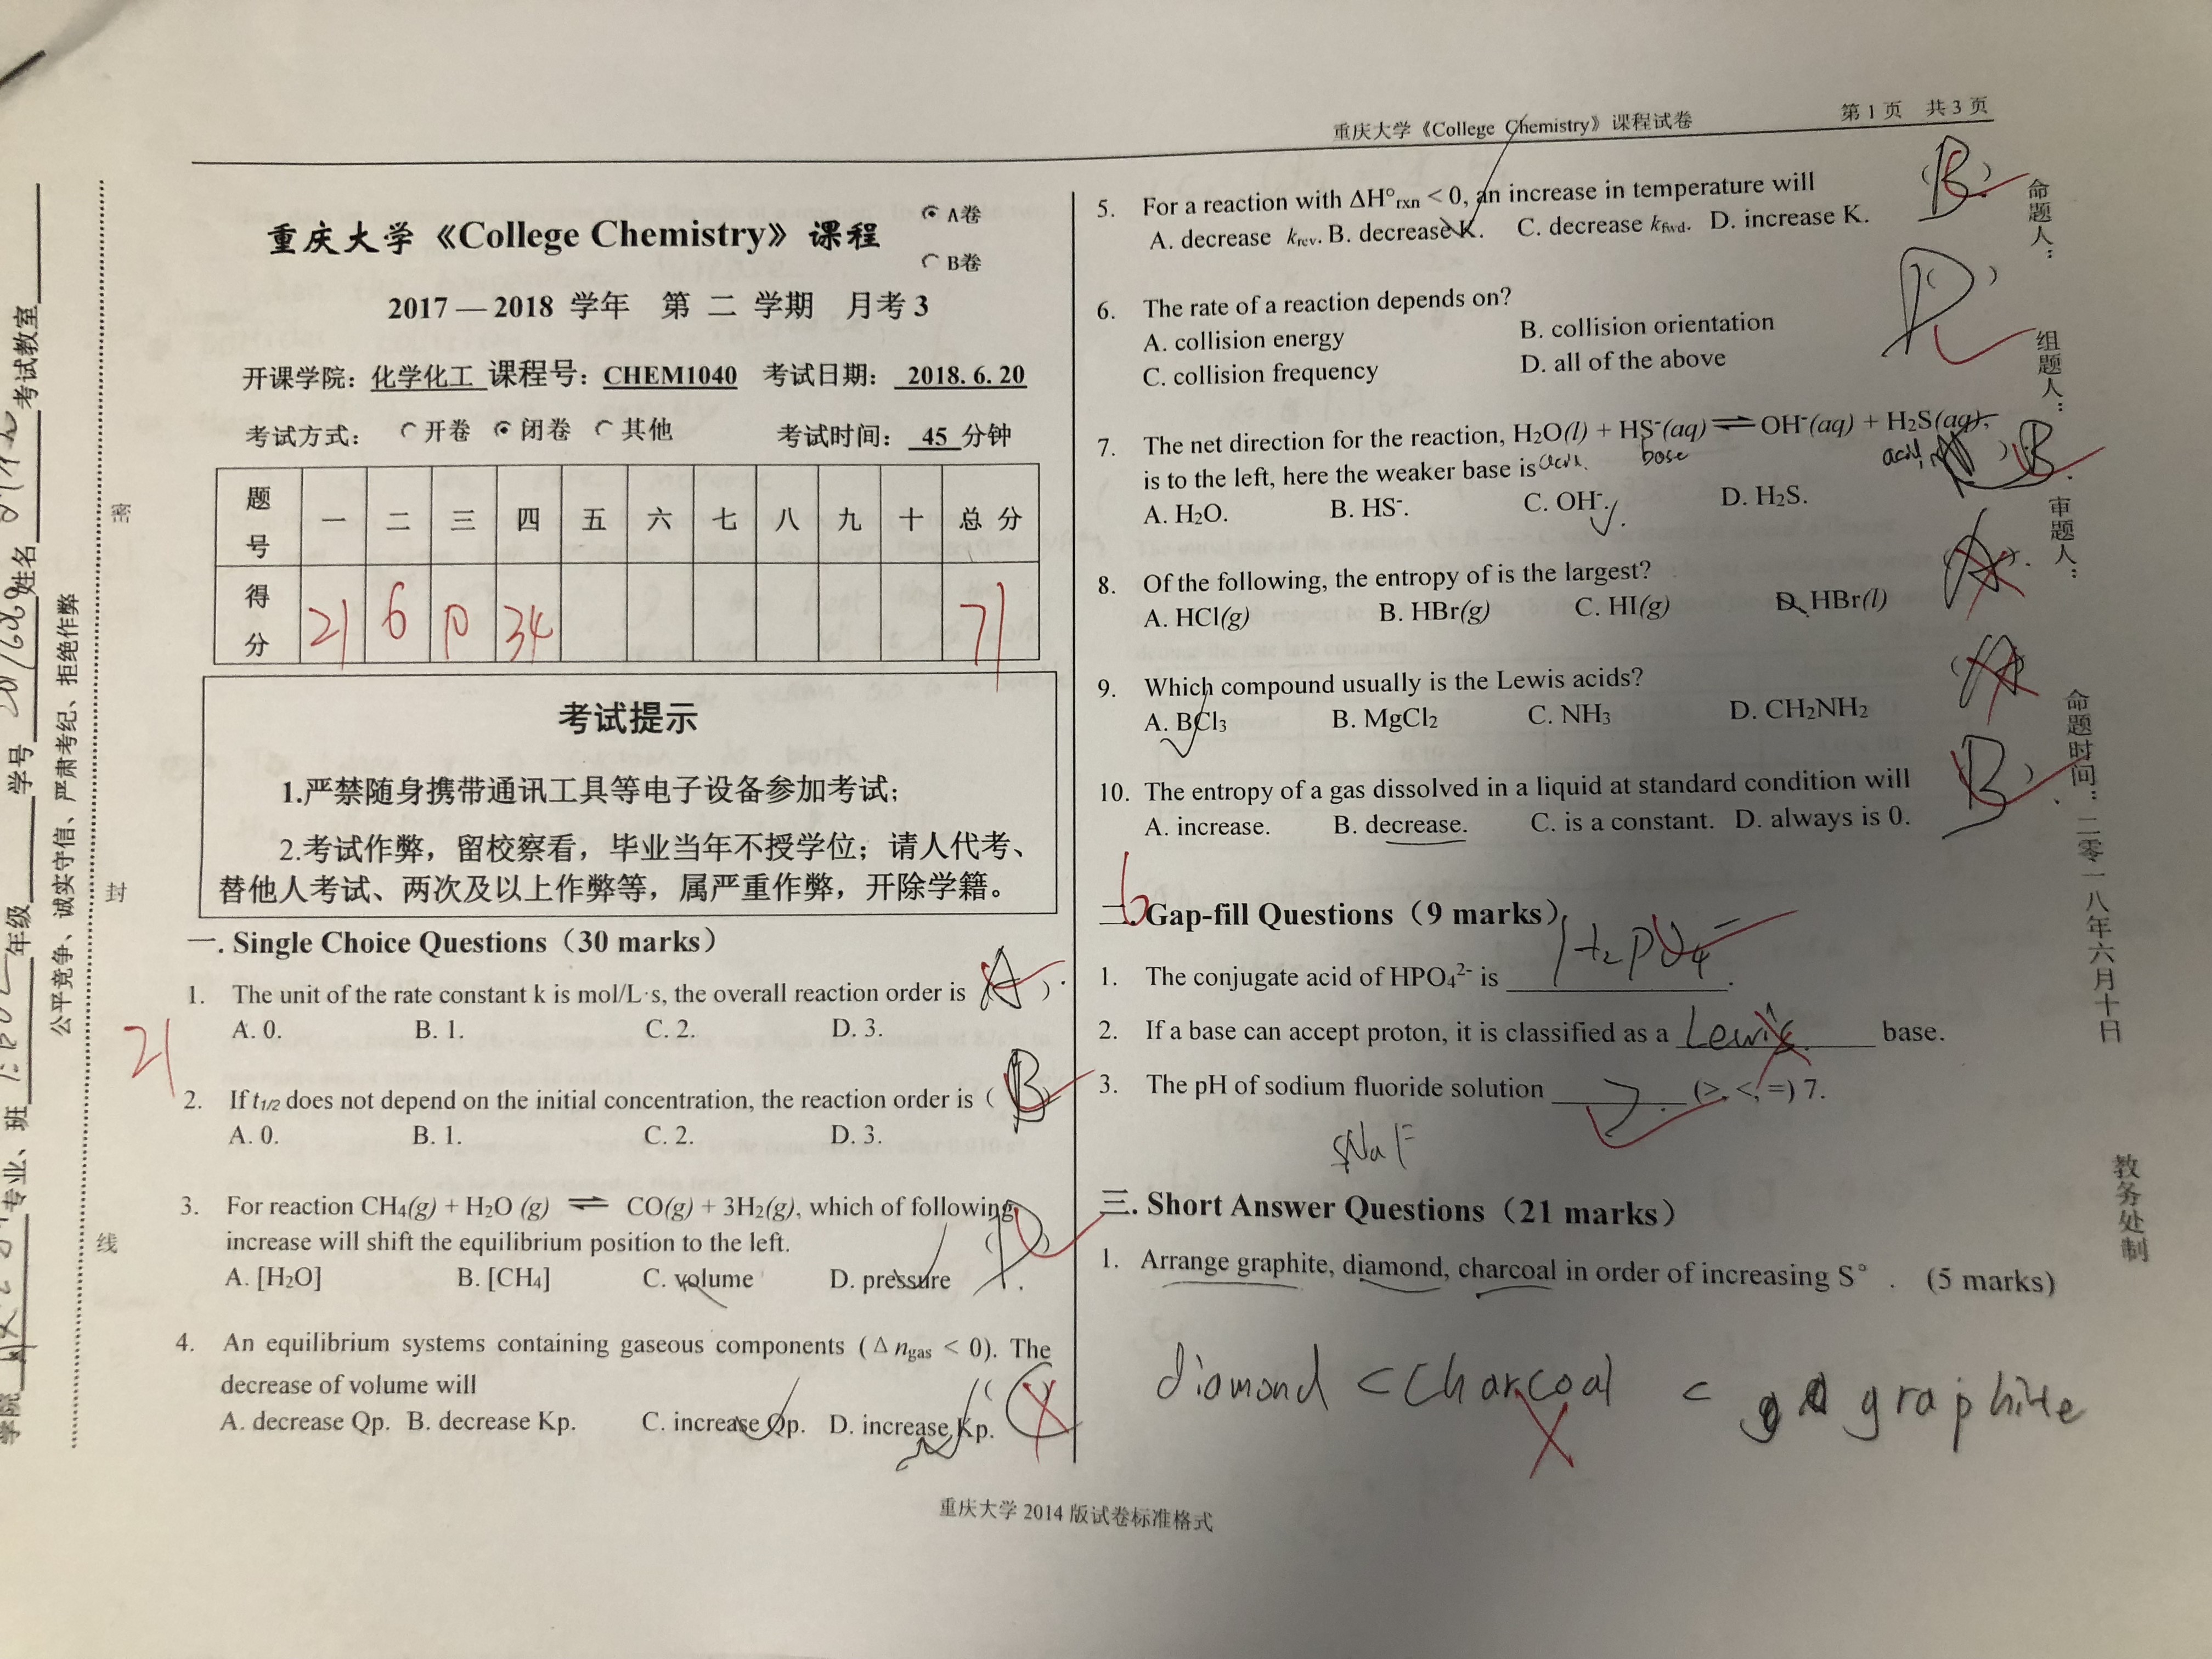 重庆大学《College Chemistry》课程试卷
第 1 页 共 3 页
重庆大学《College Chemistry》课程
A卷
B卷
2017 — 2018 学年 第 二 学期 月考 3
开课学院: 化学化工 课程号: CHEM1040 考试日期: 2018. 6. 20
考试方式: 开卷 闭卷 其他 考试时间: 45 分钟
题号 一 二 三 四 五 六 七 八 九 十 总 分
得分 21 6 10 34 71
考试提示
1.严禁随身携带通讯工具等电子设备参加考试;
2.考试作弊，留校察看，毕业当年不授学位；请人代考、
替他人考试、两次及以上作弊等，属严重作弊，开除学籍。
一. Single Choice Questions（30 marks）
21
1. The unit of the rate constant k is mol/L·s, the overall reaction order is (A).
A. 0. B. 1. C. 2. D. 3.
2. If t1/2 does not depend on the initial concentration, the reaction order is (B)
A. 0. B. 1. C. 2. D. 3.
3. For reaction CH4(g) + H2O (g) ⇌ CO(g) + 3H2(g), which of following
increase will shift the equilibrium position to the left. (D).
A. [H2O] B. [CH4] C. volume D. pressure
4. An equilibrium systems containing gaseous components (Δ ngas < 0). The
decrease of volume will ( )
A. decrease Qp. B. decrease Kp. C. increase Qp. D. increase Kp.
5. For a reaction with ΔH°rxn < 0, an increase in temperature will (B)
A. decrease krev. B. decrease K. C. decrease kfwd. D. increase K.
6. The rate of a reaction depends on? (D)
A. collision energy B. collision orientation
C. collision frequency D. all of the above
7. The net direction for the reaction, H2O(l) + HS-(aq) ⇌ OH-(aq) + H2S(aq),
base
is to the left, here the weaker base is B
A. H2O. B. HS-. C. OH-. D. H2S.
8. Of the following, the entropy of is the largest? (A).
A. HCl(g) B. HBr(g) C. HI(g) D. HBr(l)
9. Which compound usually is the Lewis acids? (A)
A. BCl3 B. MgCl2 C. NH3 D. CH2NH2
10. The entropy of a gas dissolved in a liquid at standard condition will (B).
A. increase. B. decrease. C. is a constant. D. always is 0.
6
二. Gap-fill Questions（9 marks）
1. The conjugate acid of HPO4 2- is H2PO4-.
2. If a base can accept proton, it is classified as a Lewis base.
3. The pH of sodium fluoride solution > . (>, <, =) 7.
NaF
三. Short Answer Questions（21 marks）
1. Arrange graphite, diamond, charcoal in order of increasing S° . (5 marks)
diamond < charcoal < graphite
重庆大学 2014 版试卷标准格式
学院 专业、班 年级 学号 姓名 考试教室
公平竞争、诚实守信、严肃考纪、拒绝作弊
密
封
线
命题人:
组题人:
审题人:
命题时间: 二零一八年六月十日
教务处制